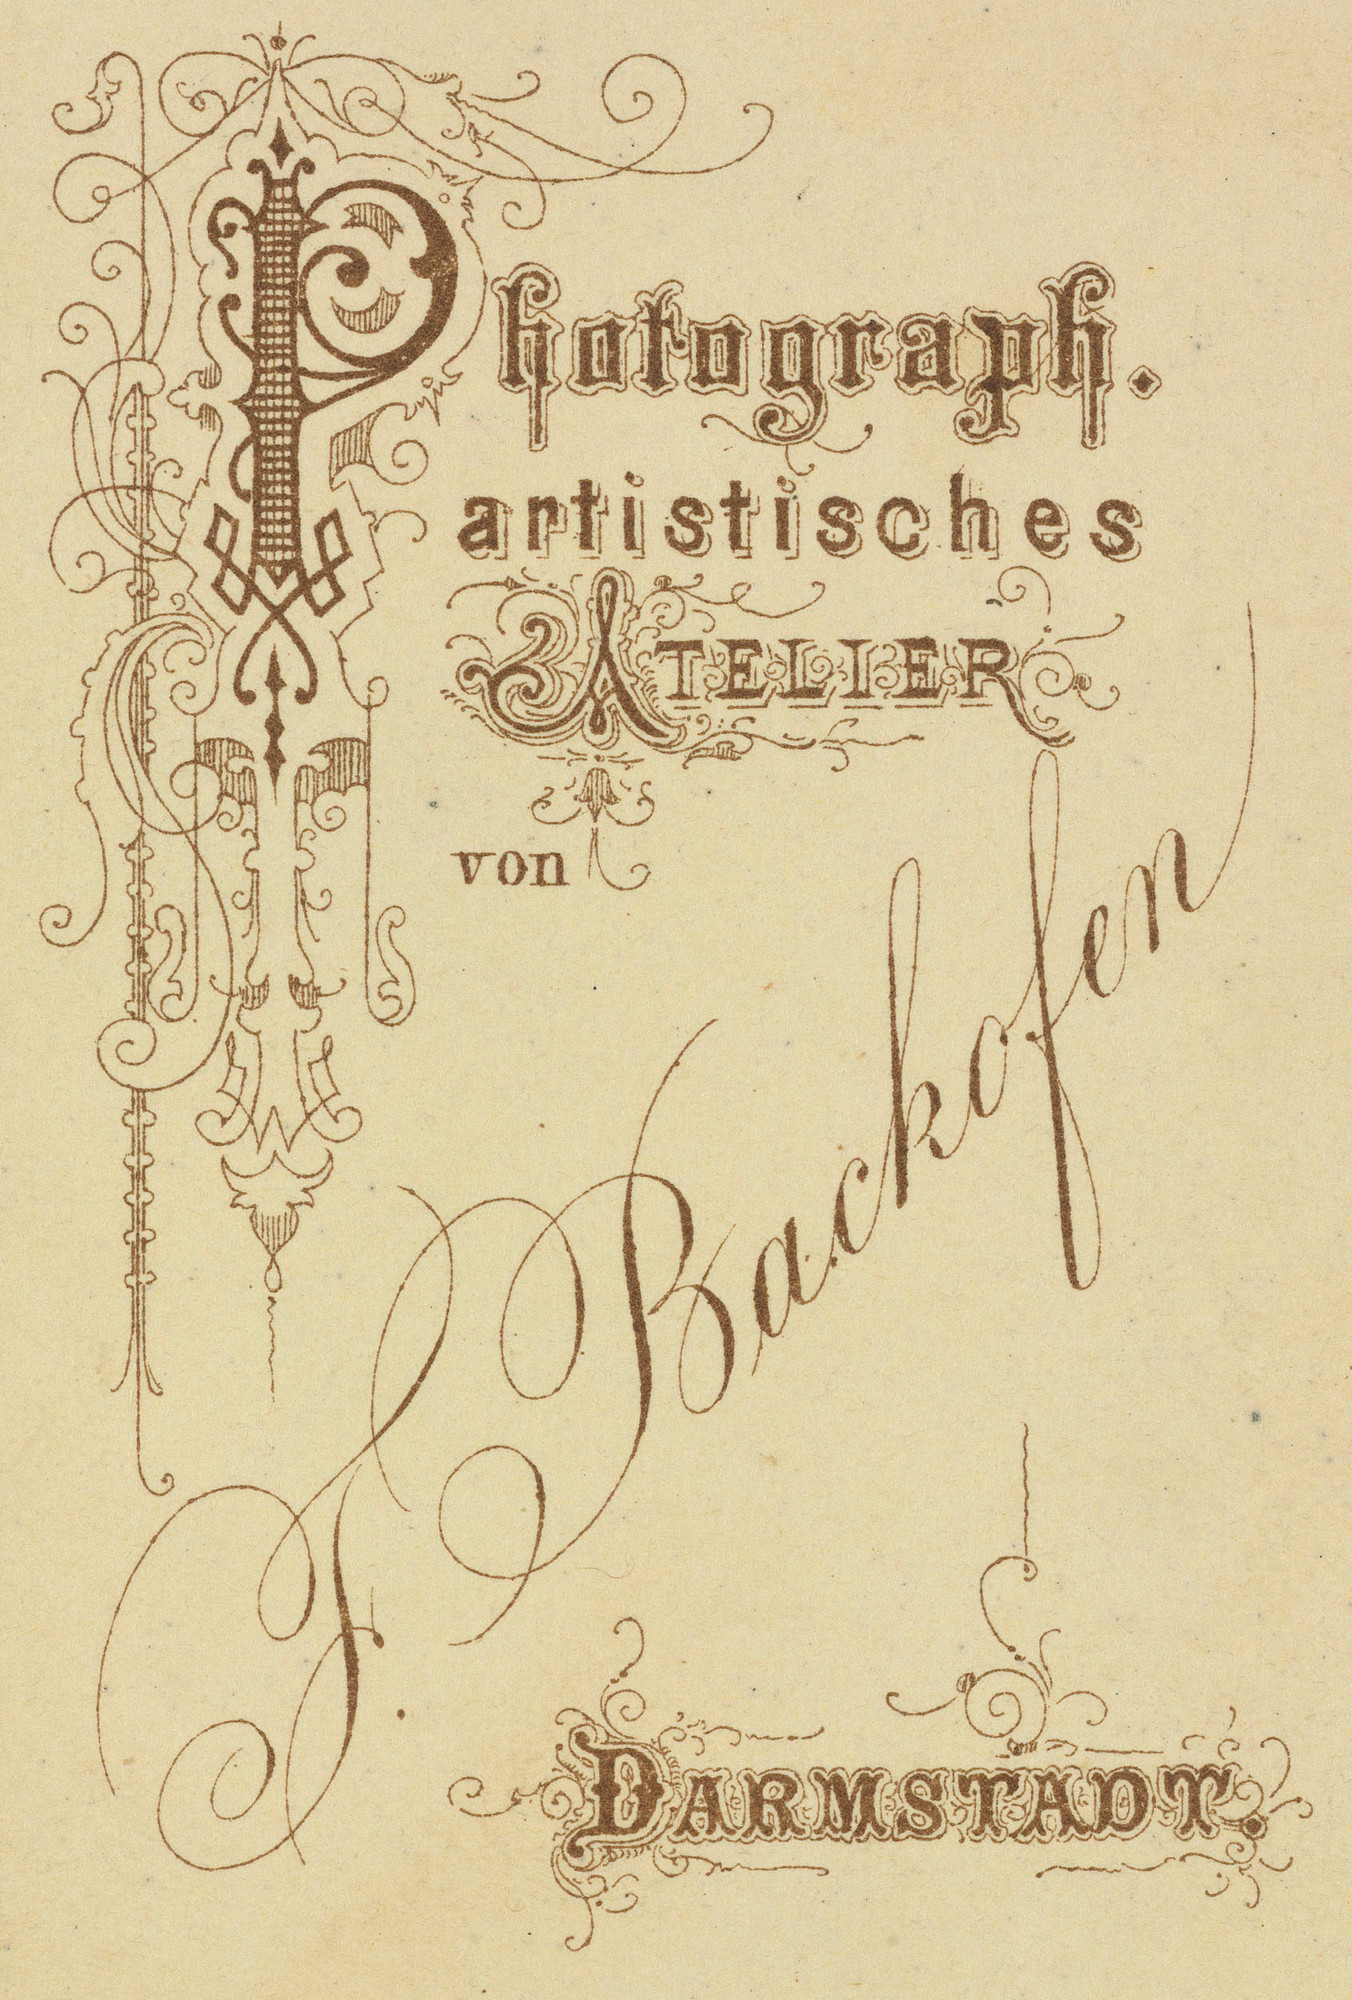 Photograph.
artistisches
ATELIER
von
F. Backofen
DARMSTADT.